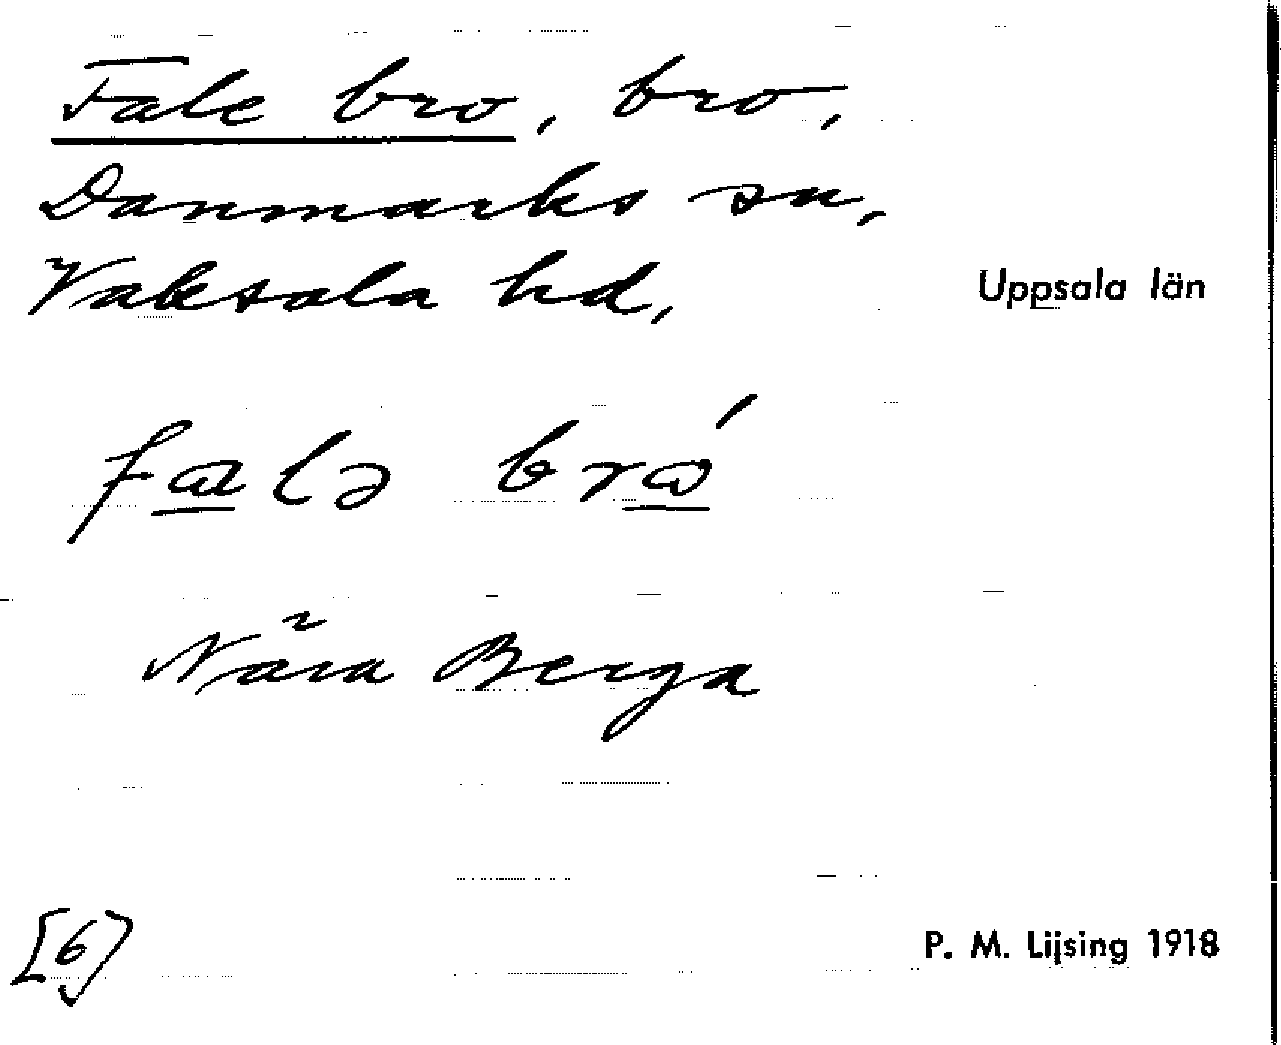 Fale bro, bro,
Danmarks sn,
Vaksala hd, Uppsala län
falə brώ
Nära Berga
[6] P. M. Lijsing 1918